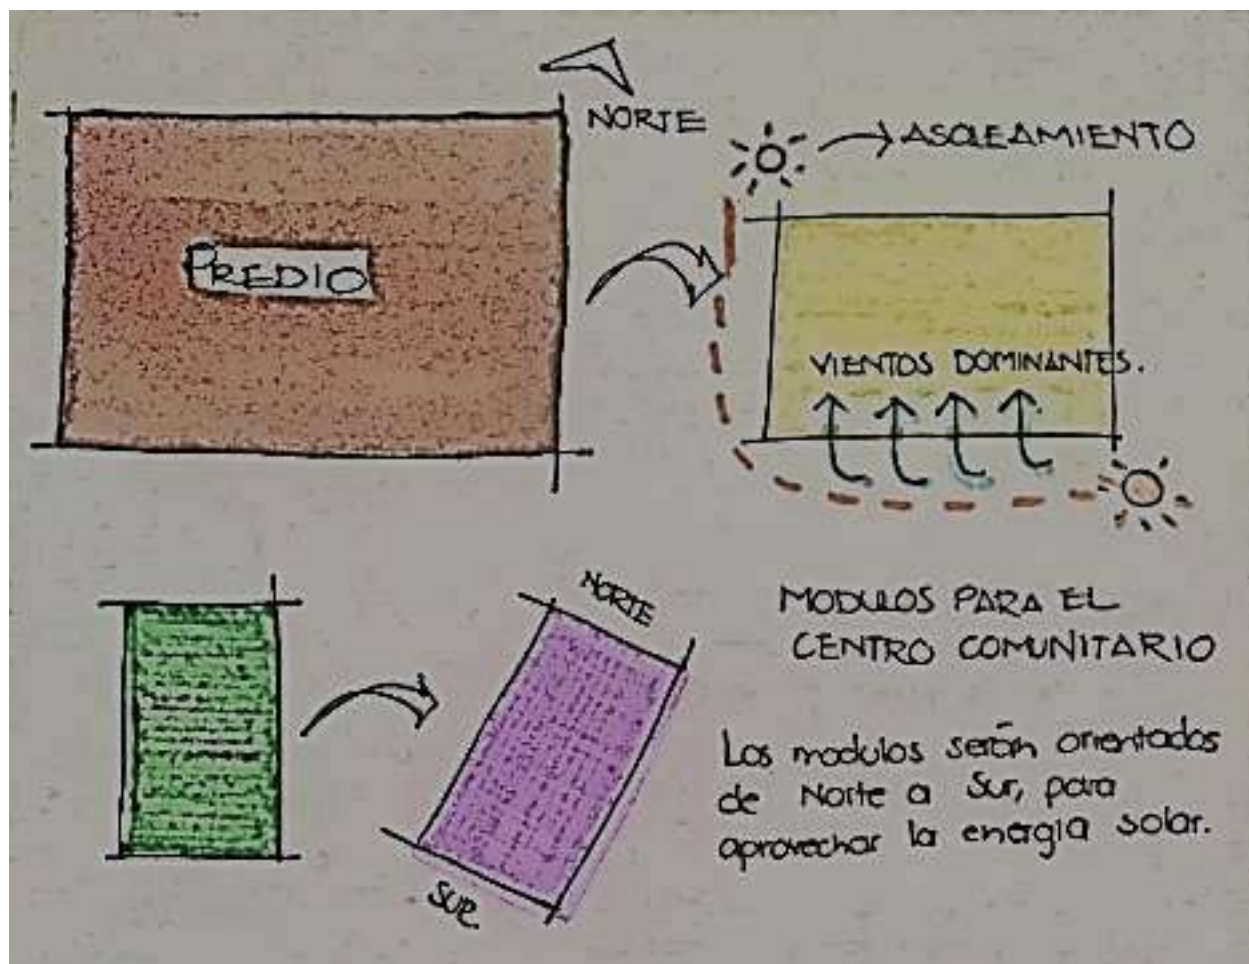 NORTE
PREDIO
ASOLEAMIENTO
VIENTOS DOMINANTES.
NORTE
SUR
MODULOS PARA EL
CENTRO COMUNITARIO
Los modulos serán orientados
de Norte a Sur, para
aprovechar la energia solar.